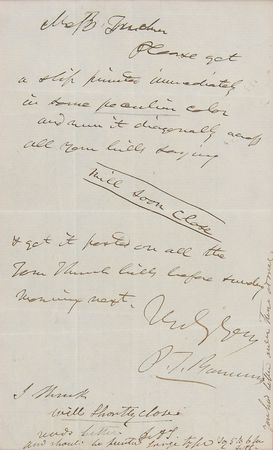 Please get
a slip printed immediately
in some peculiar color
and run it diagonally across
all your bills saying
Will Soon Close
& get it posted on all the
Tom Thumb bills before sunday
morning next.
Truly Yours
P. T. Barnum
I think
will shortly close
reads better
and should be printed large type